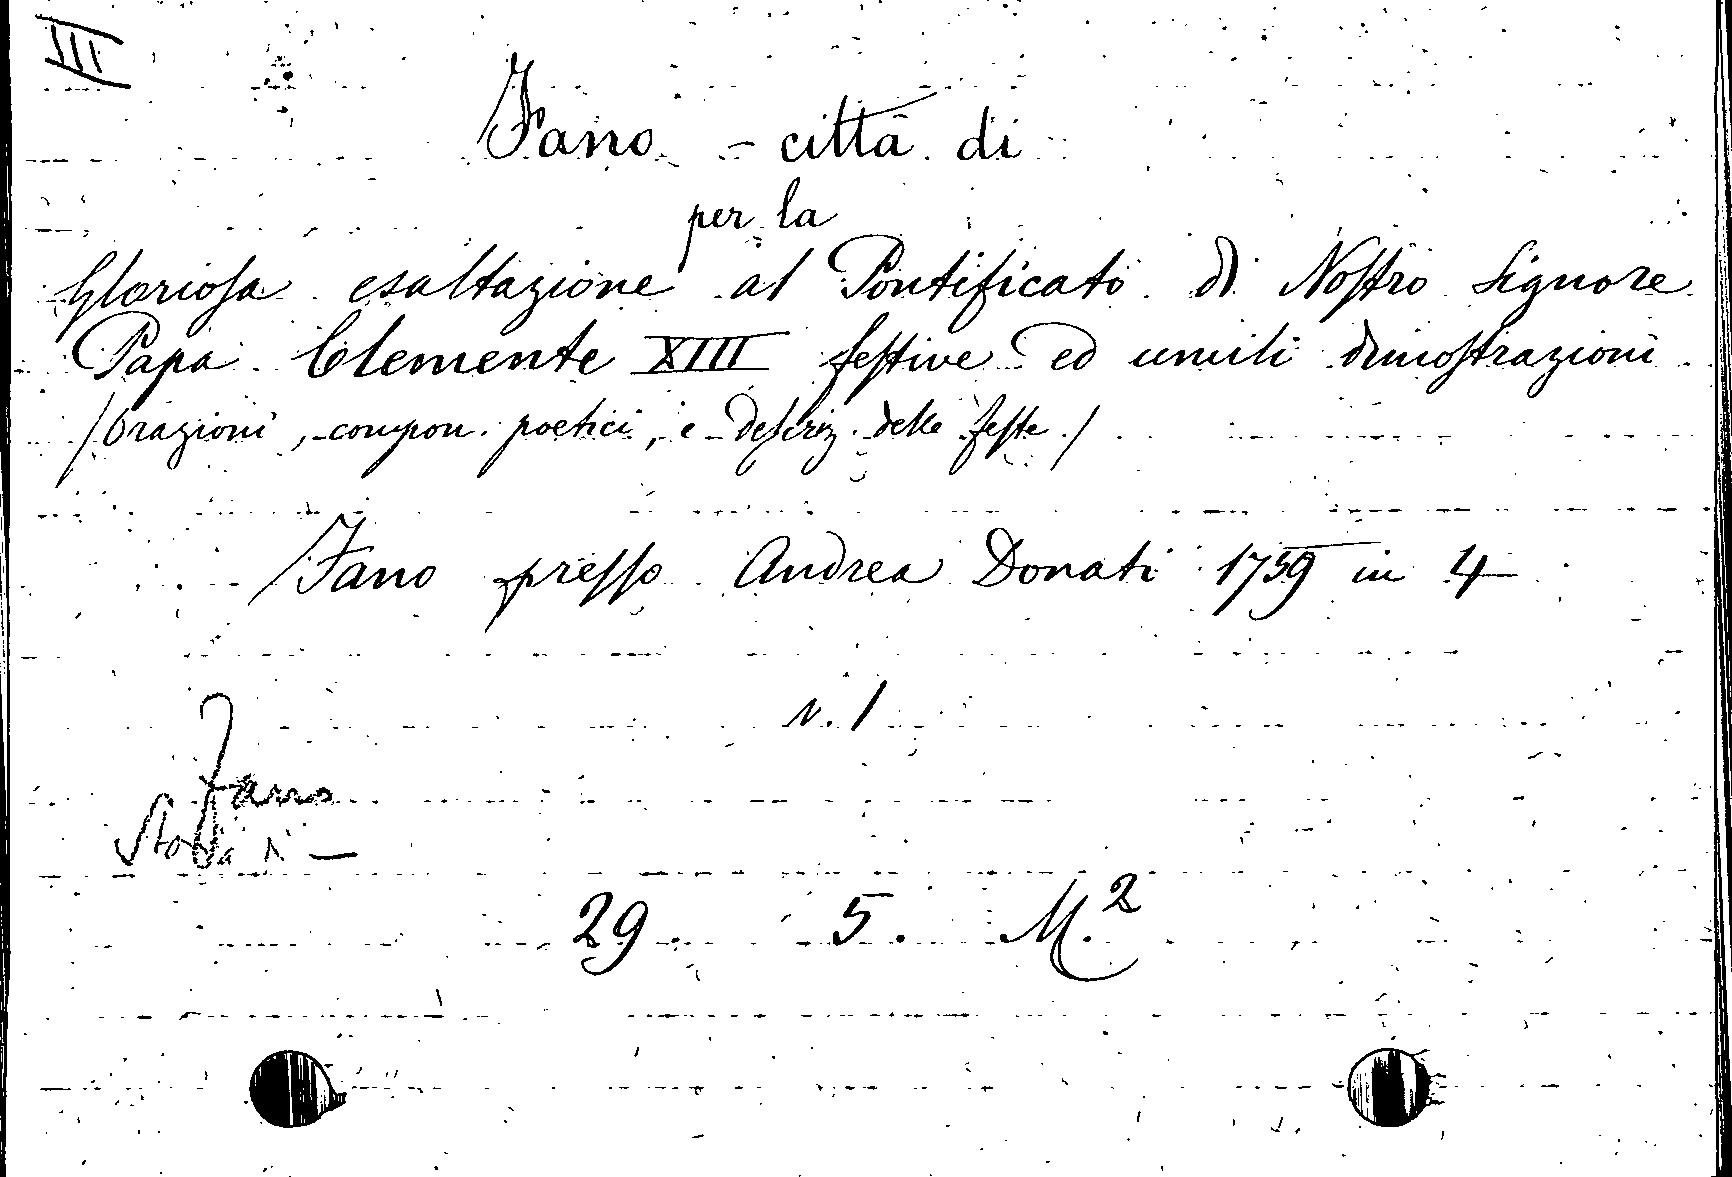 III
Fano - città di
per la
Gloriosa esaltazione al Pontificato di Nostro Signore
Papa Clemente XIII festive ed umili dimostrazioni
/Orazioni, compon. poetici, e descriz. delle feste./
Fano presso Andrea Donati 1759 in 4
n. 1
Fano
Storia di —
29. 5. M.²